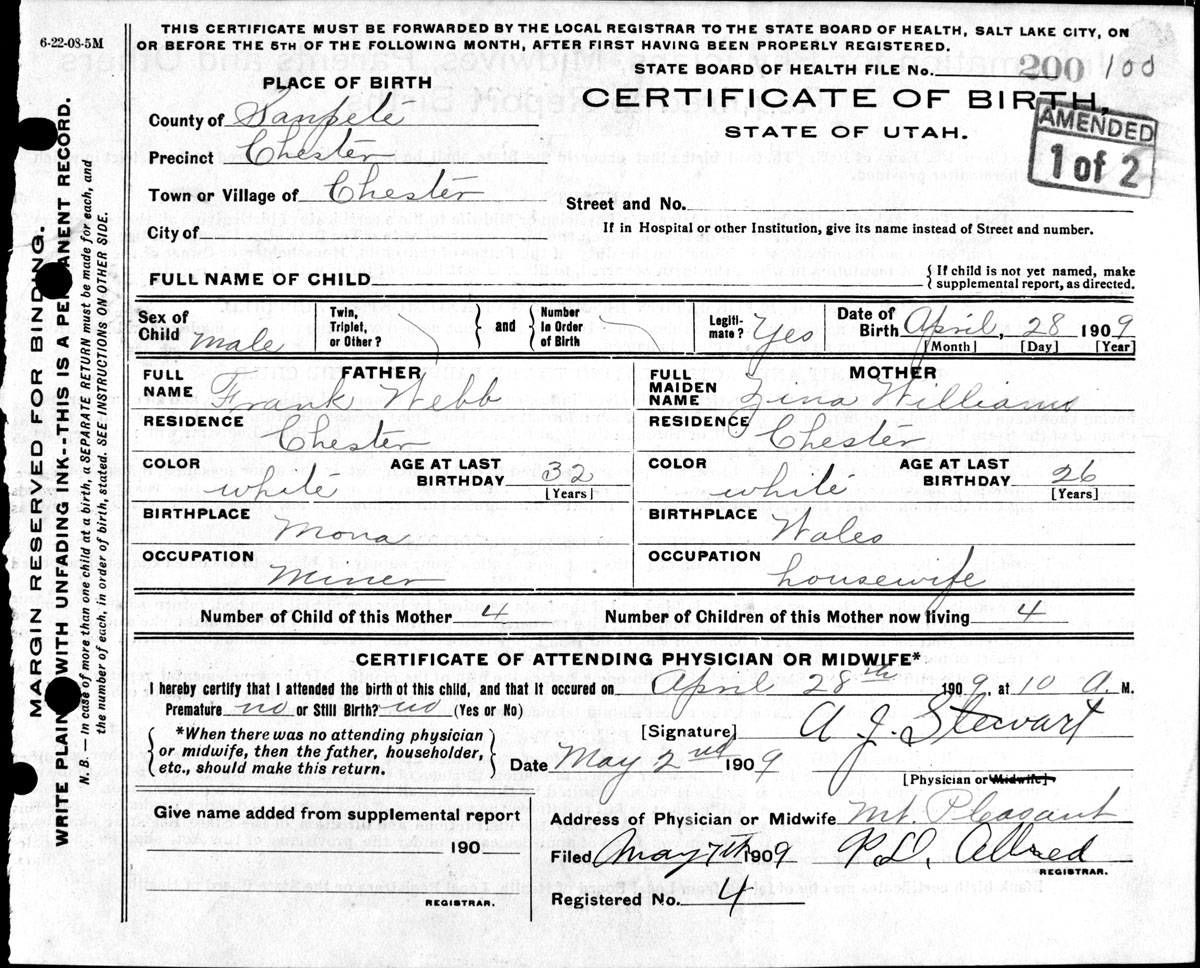 6-22-08-5M
THIS CERTIFICATE MUST BE FORWARDED BY THE LOCAL REGISTRAR TO THE STATE BOARD OF HEALTH, SALT LAKE CITY, ON
OR BEFORE THE 5TH OF THE FOLLOWING MONTH, AFTER FIRST HAVING BEEN PROPERLY REGISTERED.
STATE BOARD OF HEALTH FILE No. 200 100
PLACE OF BIRTH
CERTIFICATE OF BIRTH.
STATE OF UTAH.
AMENDED
1 of 2
County of Sanpete
Precinct Chester
Town or Village of Chester
Street and No.
City of
If in Hospital or other Institution, give its name instead of Street and number.
FULL NAME OF CHILD
{ If child is not yet named, make
supplemental report, as directed.
Sex of Child male
Twin, Triplet, or Other? } and { Number In Order of Birth
Legiti-mate? Yes
Date of Birth April, 28 1909
[Month] [Day] [Year]
FATHER
FULL NAME Frank Webb
RESIDENCE Chester
COLOR white AGE AT LAST BIRTHDAY 32
[Years]
BIRTHPLACE Mona
OCCUPATION Miner
MOTHER
FULL MAIDEN NAME Zina Williams
RESIDENCE Chester
COLOR white AGE AT LAST BIRTHDAY 26
[Years]
BIRTHPLACE Wales
OCCUPATION housewife
Number of Child of this Mother 4 Number of Children of this Mother now living 4
CERTIFICATE OF ATTENDING PHYSICIAN OR MIDWIFE*
I hereby certify that I attended the birth of this child, and that it occured on April 28th 1909, at 10 a. M.
Premature no or Still Birth? no (Yes or No)
{ *When there was no attending physician
or midwife, then the father, householder,
etc., should make this return. }
[Signature] A. J. Stewart
Date May 2nd 1909
[Physician or Midwife]
Give name added from supplemental report
190
REGISTRAR.
Address of Physician or Midwife Mt. Pleasant
Filed May 7th 1909 P. D. Allred
REGISTRAR.
Registered No. 4
MARGIN RESERVED FOR BINDING.
WRITE PLAINLY WITH UNFADING INK--THIS IS A PERMANENT RECORD.
N. B. — In case of more than one child at a birth, a SEPARATE RETURN must be made for each, and
the number of each, in order of birth, stated. SEE INSTRUCTIONS ON OTHER SIDE.